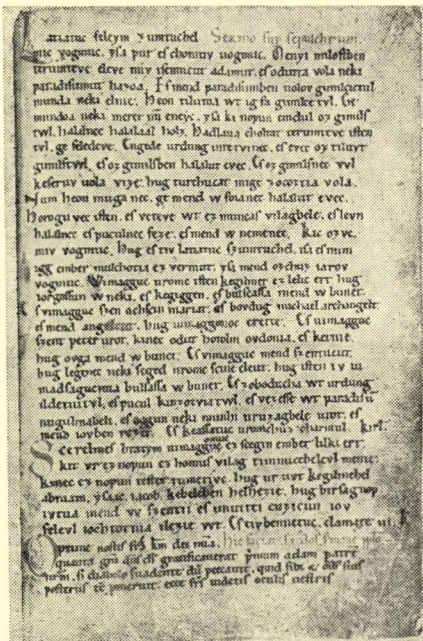 Latiatuc feleym zumtuchel Sermo sup sepulchrum.
mic vogmuc. ysa pur es chomuv uogmuc. Menyi milostben
terumteve eleve miv isemucut adamut. es odutta vola neki
paradisumut hazoa. Es mend paradisumben uolov gimilcictul
munda neki elnie. Heon tilutoa wt ig fa gimilce tvl. Ge
mundoa neki meret nū eneyc. ysa ki nopun emdul oz gimils
twl. halalnec halalaal holz. Hadlaua choltat terumteve isten
tvl. ge feledeve. Engede urdung intetvinec. es evec oz tiluvt
gimilstwl. es oz gimilsben halalut evec. Es oz gimilsnec vvl
keseruv uola vize. hug turchucat mige zocoztia vola.
Num heon muga nec. ge mend w foianec halalut evec.
Horogu vec isten. es veteve wt ez muncas vilagbele. es levn
halalnec es puculnec feze. es mend w nemenec. Kic ozvc.
miv vogmuc. Hug es tiv latiatuv szumtuchel. isa es num
igg ember mulchotia ez vermut. ysa mend ozchuz iarov
vogmuc. Wimagguc uromc isten kegilmet ez lelic ert. hug
iorgossun w neki. es kegiggen. es bulsassa mend w bunet.
Es vimagguc szen achscin mariat. es bovdug michael archangelt
es mend angelcut. hug uimaggonoc erette. Es uimagguc
szent peter urot. kinec odut hotolm ovdonia. es ketnie.
hug ovga mend w bunet. Es vimagguc mend szentucut.
hug legenec neki seged uromc scine eleut. hug isten iv ui
madsagucmia bulsassa w bunet. Es zoboducha wt urdung
ildetuitvl. es pucul kinzotviatwl. es vezesse wt paradisu
nugulmabeli. es oggun neki munhi uruzagbele utot. es
mend iovben rezet. Es keassatuc uromchuz charmul. kirl.
Scerelmes bratym uimagguc omuc ez scegin ember lilki ert.
kit vr ez nopun ez homus vilag timnucebelevl mente.
kinec ez nopun testet tumetivc. hug ur uvt kegilmehel
abraam. ysaac. iacob. kebeleben helhezie. hug birsagnop
ivtva mend w szentii es unuttei cuzicun iov
felevl iochtotnia ilezie wt. Es tiv bennetuc. clamate iii. k.